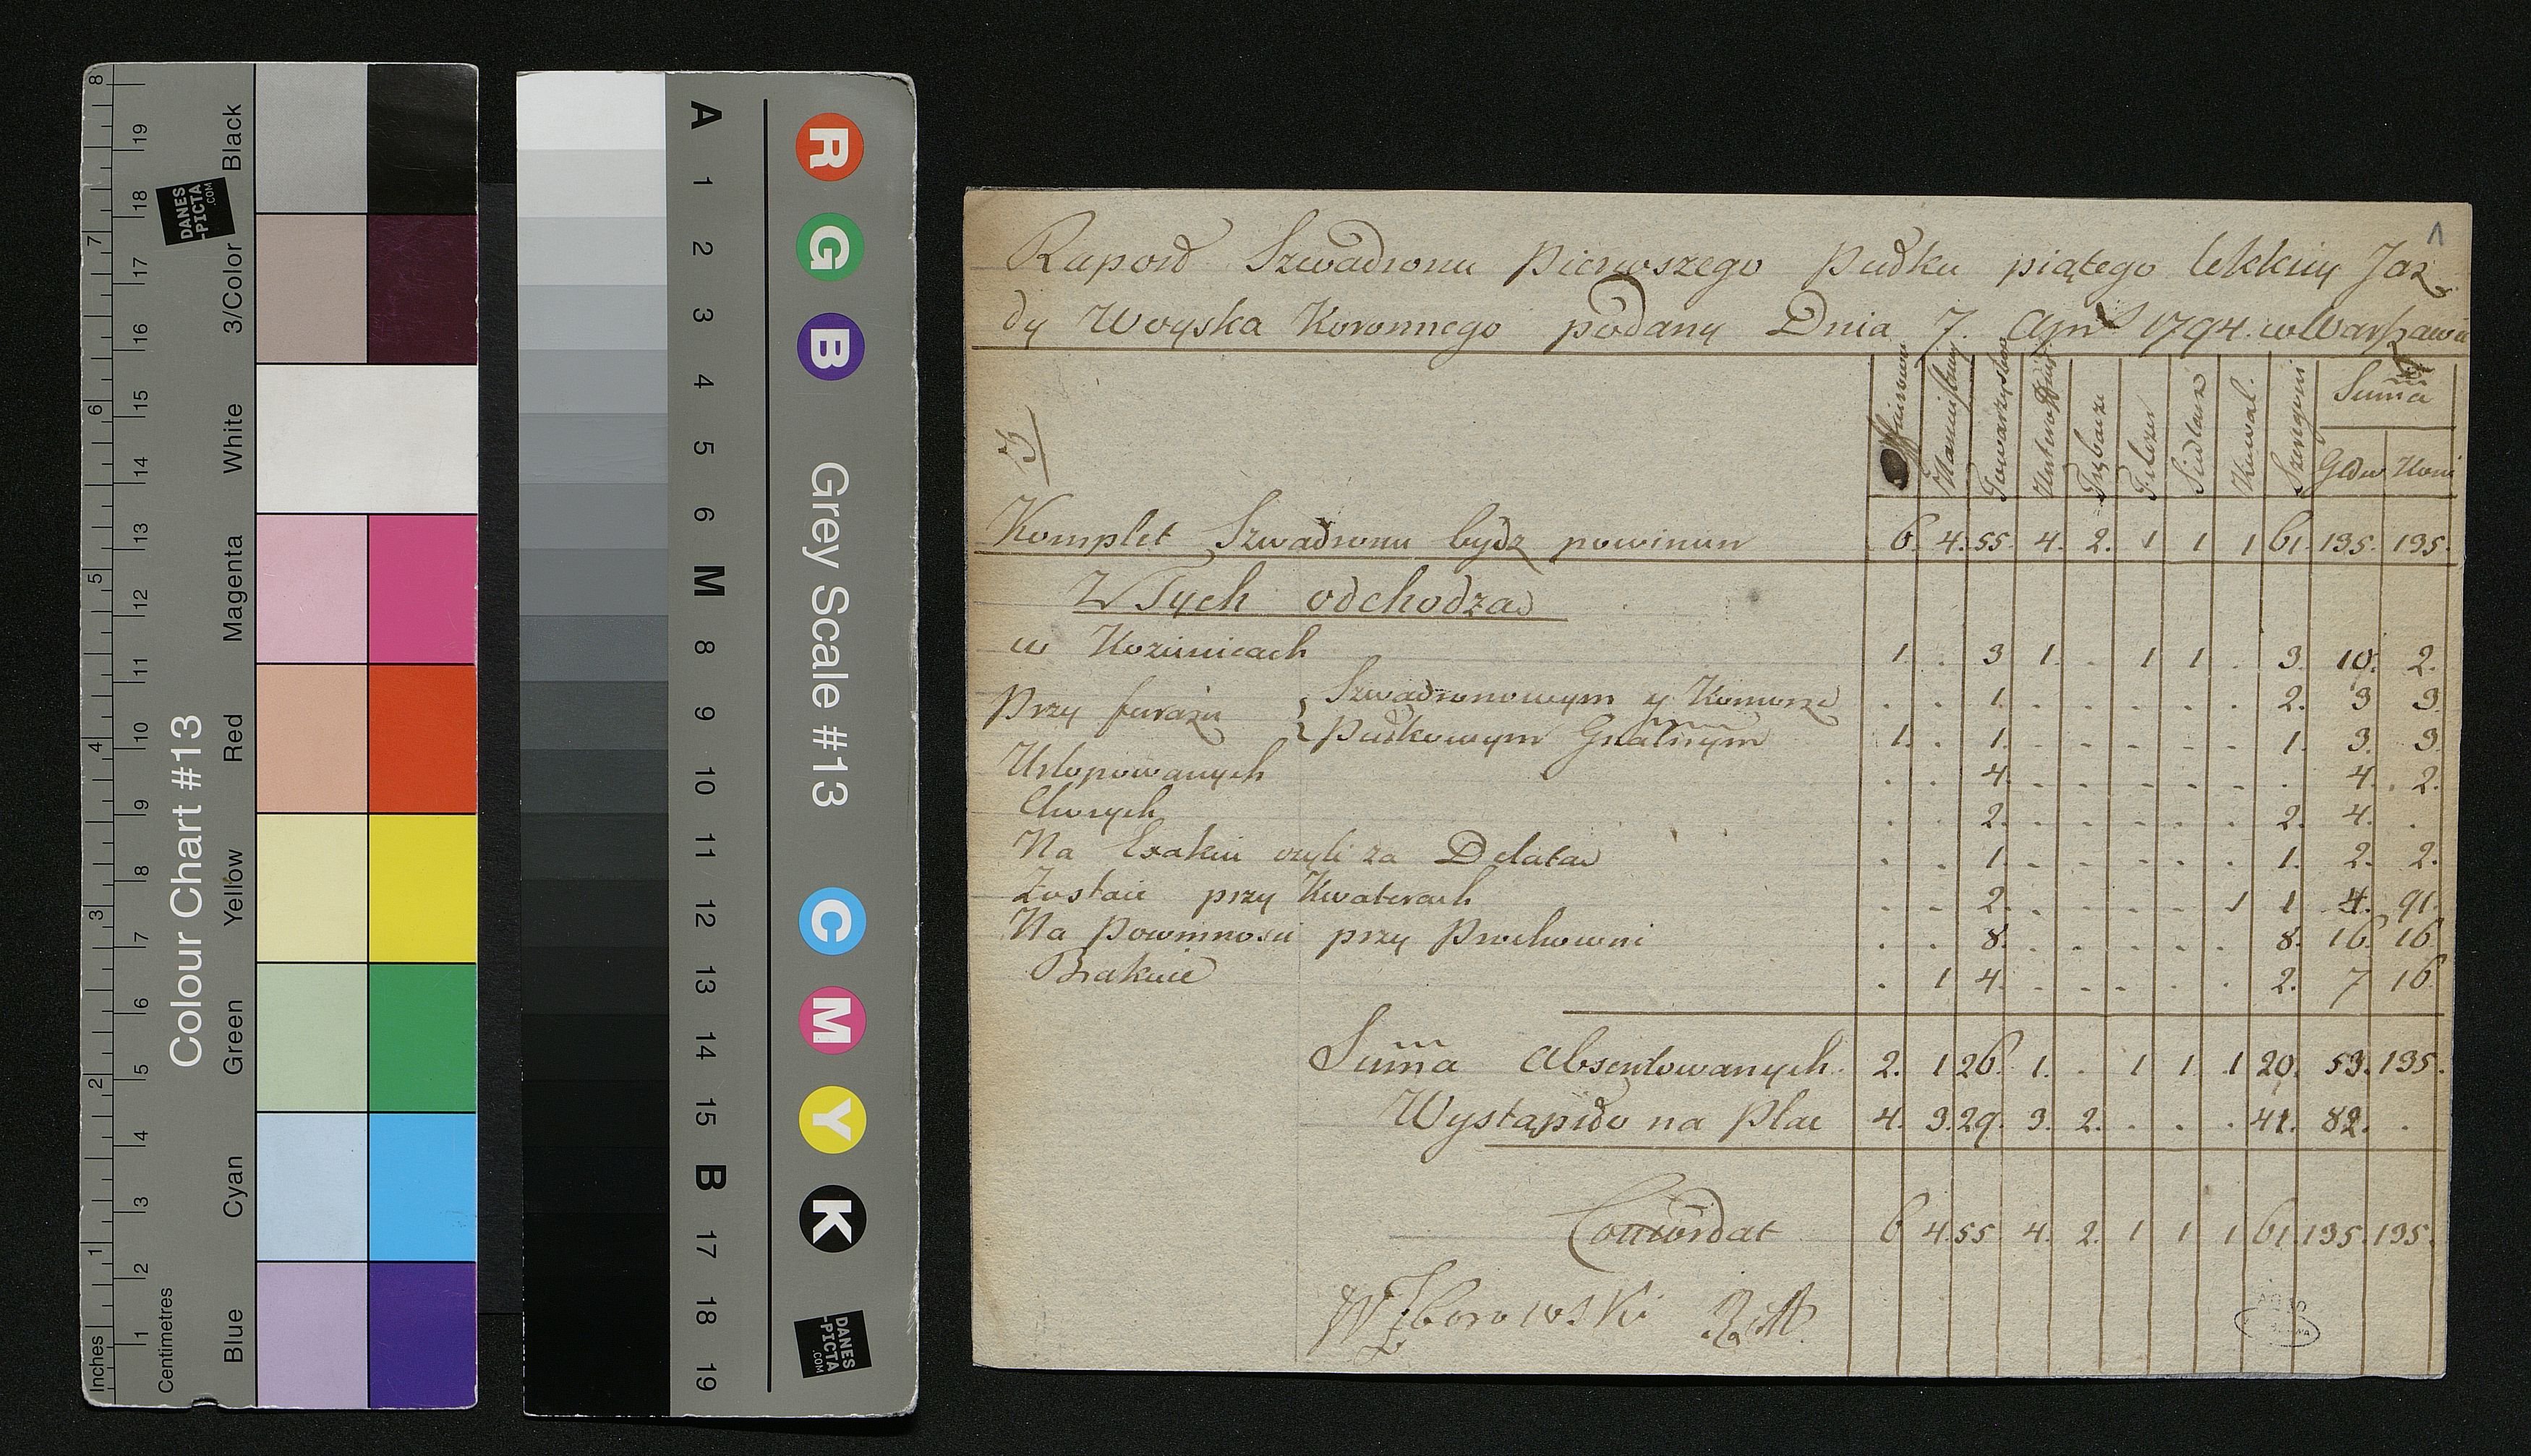 8 7 6 5 4 3 2 1 Inches
19 18 17 16 15 14 13 12 11 10 9 8 7 6 5 4 3 2 1 Centimetres
Colour Chart #13
Black
3/Color
White
Magenta
Red
Yellow
Green
Cyan
Blue
DANES
-PICTA
.COM
A 1 2 3 4 5 6 M 8 9 10 11 12 13 14 15 B 17 18 19
R G B
Grey Scale #13
C M Y K
DANES
-PICTA
.COM
1
Raport Szwadronu Pierwszego Pułku piątego lekkiey Jaz
dy Woyska Koronnego podany Dnia 7. Apr 1794. w Warszawie
Trębacze Felczer Siodlarz Kowal. Szeregowi Suma
Głów Koni
Komplet Szwadronu bydz powinien 6. 4. 55. 4. 2. 1 1 1 61. 135. 135.
Z Tych odchodzą
w Kozienicach 1. . 3 1. . 1 1 . 3. 10. 2.
Przy furażu Szwadronowym y Komorze . . 1. . . . . . 2. 3 3.
Pułkowym Gnalnym 1. . 1. . . . . . 1. 3. 3.
Urlopowanych . . 4. . . . . . . 4. 2.
Chorych . . 2. . . . . . 2. 4. .
Na Exakcii czyli za Delatą . . 1. . . . . . 1. 2. 2.
Zostaie przy Kwaterach . . 2. . . . . 1 1 4. 91.
Na Powinnosci przy Prochowni . . 8. . . . . . 8. 16. 16.
Brakuie . 1 4. . . . . . 2. 7 16
Suma Absentowanych 2. 1 26. 1. . 1 1 1 20. 53. 135.
Wystąpiło na Plac 4. 3. 29. 3. 2. . . . 41. 82. .
Concordat 6 4. 55 4. 2. 1 1 1 61 135. 135.
W Zborowski